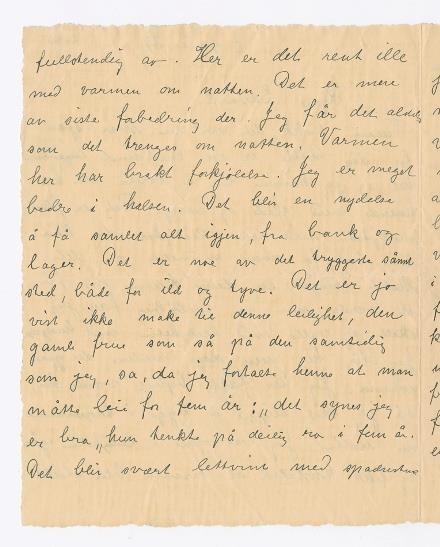 fullstendig av. Her er det rent ille
med varmen om natten. Det er mere
av siste forbedring der. Jeg får det aldri
som det trenges om natten. Varmen
her har brakt forkjølelse. Jeg er meget
bedre i halsen. Det blir en nydelse
å få samlet alt igjen, fra bank og
lager. Det er noe av det tryggeste sånt
sted, både for ild og tyve. Det er jo
visst ikke make til denne leilighet, den
gamle frue som så på den samtidig
som jeg, sa, da jeg fortalte henne at man
måtte leie for fem år: „det synes jeg
er bra„ hun tenkte på deilig ro i fem år.
Det blir svært lettvint med